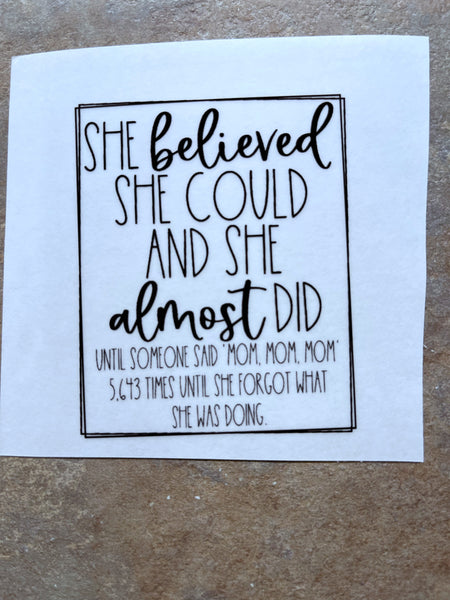 SHE believed
SHE COULD
AND SHE
almost DID
UNTIL SOMEONE SAID 'MOM, MOM, MOM'
5,643 TIMES UNTIL SHE FORGOT WHAT
SHE WAS DOING.